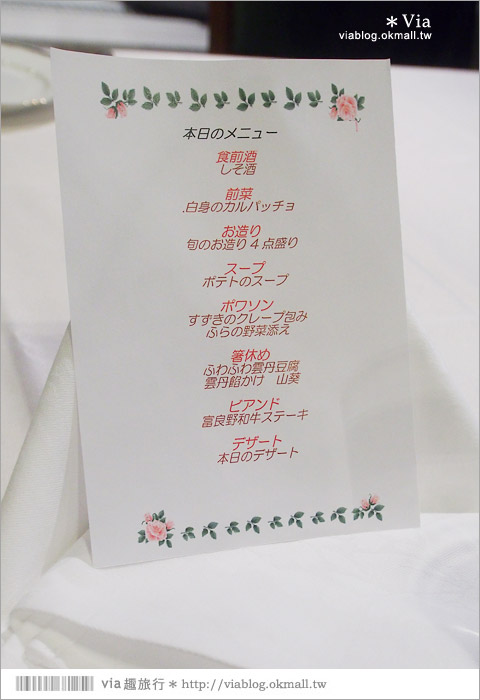 ＊Via
viablog.okmall.tw
本日のメニュー
食前酒
しそ酒
前菜
.白身のカルパッチョ
お造り
旬のお造り４点盛り
スープ
ポテトのスープ
ポワソン
すずきのクレープ包み
ふらの野菜添え
箸休め
ふわふわ雲丹豆腐
雲丹餡かけ　山葵
ビアンド
富良野和牛ステーキ
デザート
本日のデザート
via趣旅行＊http://viablog.okmall.tw